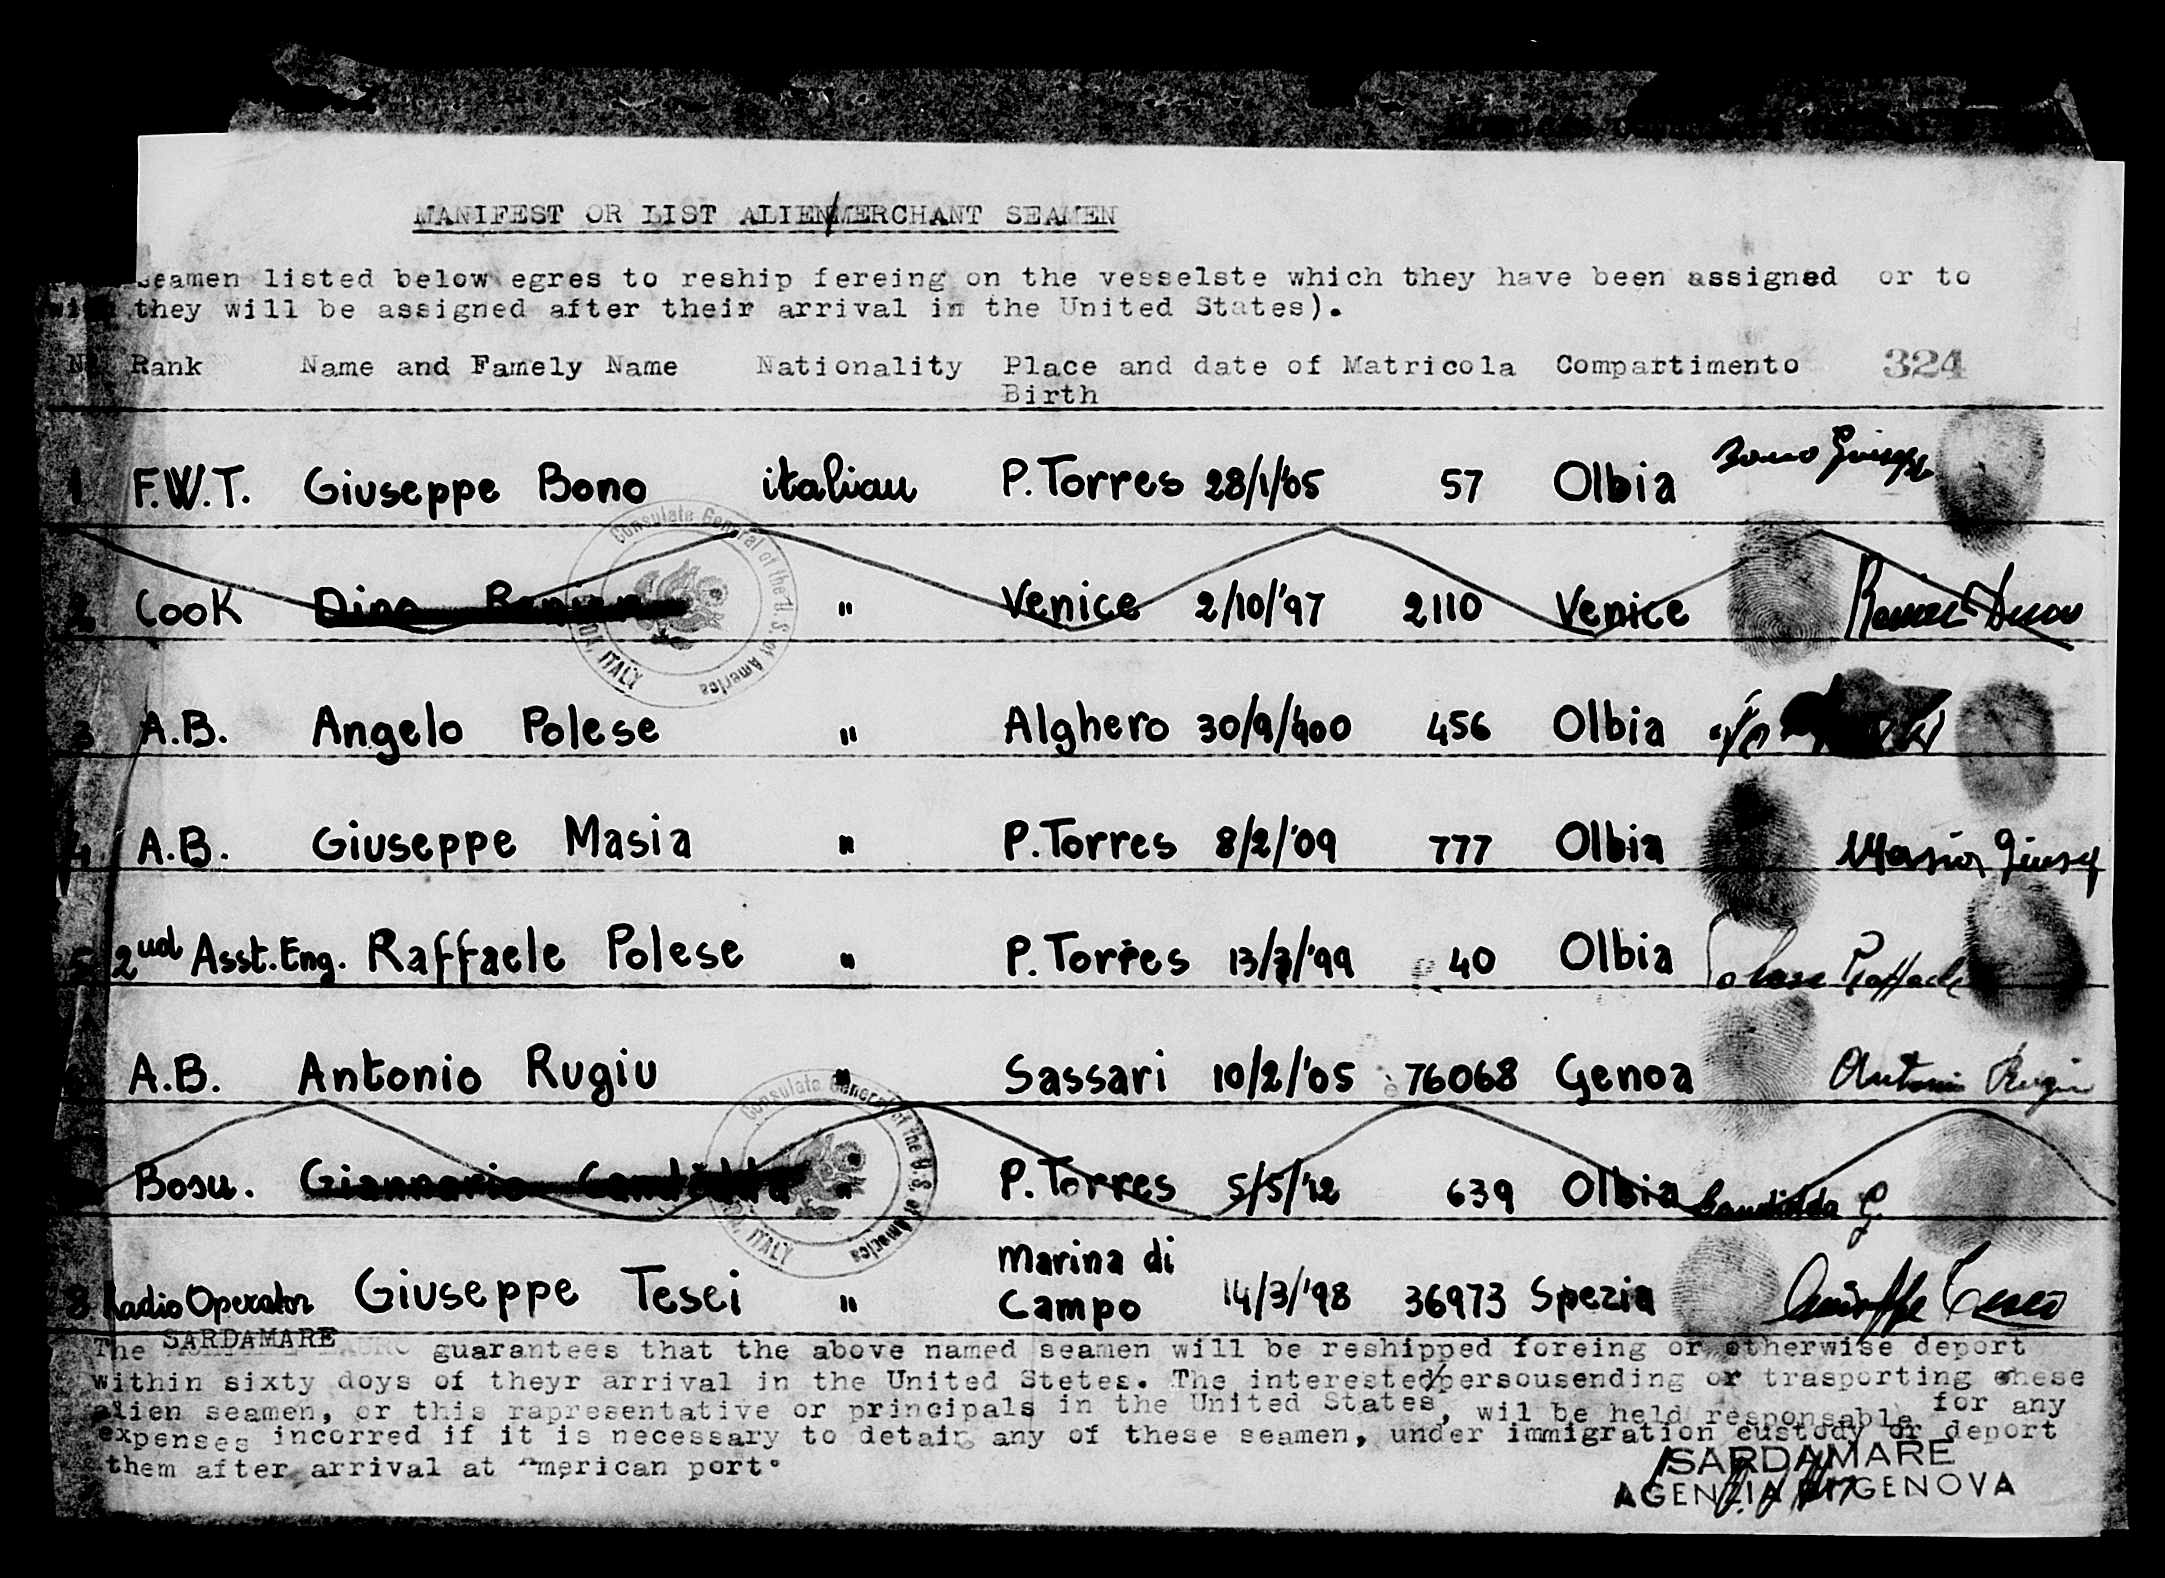 MANIFEST OR LIST ALIEN/MERCHANT SEAMEN
seamen listed below egres to reship fereing on the vesselste which they have been assigned or to
they will be assigned after their arrival in the United States).
N Rank Name and Famely Name Nationality Place and date of Matricola Compartimento 324
Birth
1 F.W.T. Giuseppe Bono italian P.Torres 28/1/'05 57 Olbia Bono Giuseppe
2 Cook Dino " Venice 2/10/'97 2110 Venice
3 A.B. Angelo Polese " Alghero 30/9/900 456 Olbia
4 A.B. Giuseppe Masia " P.Torres 8/2/'09 777 Olbia Masia Giusep
5 2nd Asst.Eng. Raffaele Polese " P.Torres 13/7/'99 40 Olbia Polese Raffaele
A.B. Antonio Rugiu " Sassari 10/2/'05 76068 Genoa Antonio Rugiu
Bosu. Giannario Candidda " P.Torres 5/5/'12 639 Olbia Candidda G.
Marina di
8 Radio Operator Giuseppe Tesei " Campo 14/3/'98 36973 Spezia Giuseppe Tesei
Consulate General of the U.S. of America
ITALY
Consulate General of the U.S. of America
ITALY
The SARDAMARE guarantees that the above named seamen will be reshipped foreing or otherwise deport
within sixty doys of theyr arrival in the United Stetes. The interested/persousending or trasporting these
alien seamen, or this rapresentative or principals in the United States, wil be held responsable for any
expenses incorred if it is necessary to detain any of these seamen, under immigration custody or deport
them after arrival at American port.
SARDAMARE
AGENZIA DI GENOVA